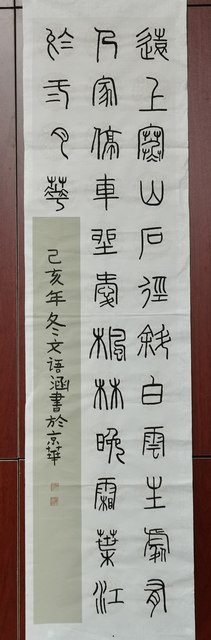 遠上寒山石徑斜白雲生處有
乃家停車坐愛楓林晚霜葉江
於弍月華
己亥年冬文語涵書於京華